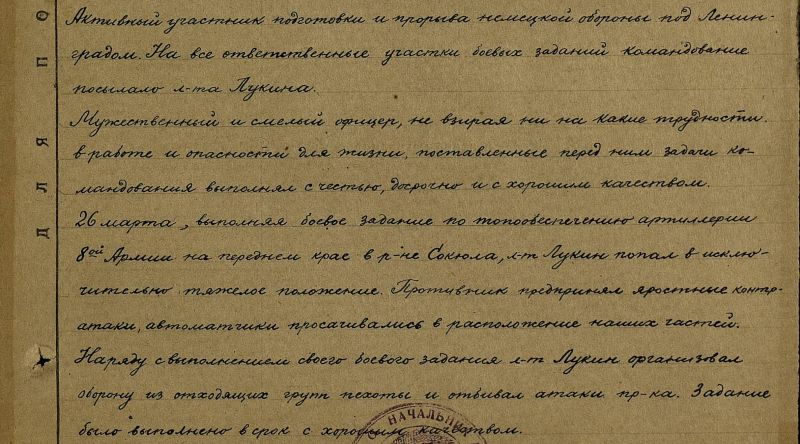 Активный участник подготовки и прорыва немецкой обороны под Ленин-
градом. На все ответственные участки боевых заданий командование
посылало л-та Лукина.
Мужественный и смелый офицер, не взирая ни на какие трудности
в работе и опасности для жизни, поставленные перед ним задачи ко-
мандования выполнял с честью, досрочно и с хорошим качеством.
26 марта, выполняя боевое задание по топообеспечению артиллерии
8ой Армии на переднем крае в р-не Сокюла, л-т Лукин попал в исклю-
чительно тяжелое положение. Противник предпринял яростные контр-
атаки, автоматчики просачивались в расположение наших частей.
Наряду с выполнением своего боевого задания л-т Лукин организовал
оборону из отходящих групп пехоты и отбивал атаки пр-ка. Задание
было выполнено в срок с хорошим качеством.
ДЛЯ ПО
НАЧАЛЬНИ